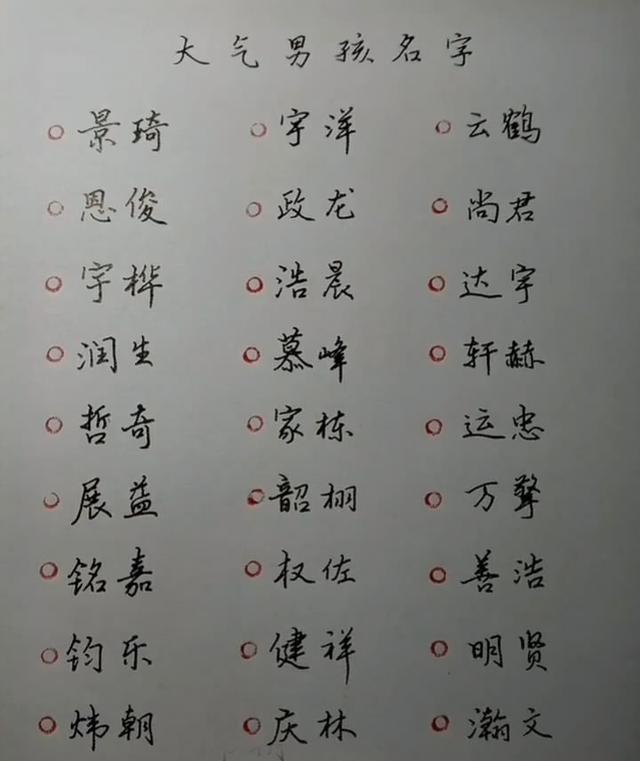 大气男孩名字
景琦 宇洋 云鹤
恩俊 政龙 尚君
宇桦 浩晨 达宇
润生 慕峰 轩赫
哲奇 家栋 运忠
展益 韶栩 万擎
铭嘉 权佐 善浩
钧乐 健祥 明贤
炜朝 庆林 瀚文